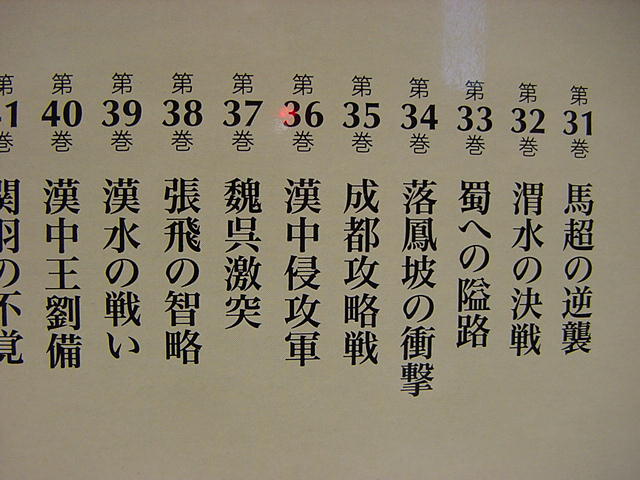 第31巻 馬超の逆襲
第32巻 渭水の決戦
第33巻 蜀への隘路
第34巻 落鳳坡の衝撃
第35巻 成都攻略戦
第36巻 漢中侵攻軍
第37巻 魏呉激突
第38巻 張飛の智略
第39巻 漢水の戦い
第40巻 漢中王劉備
第41巻 関羽の不覚